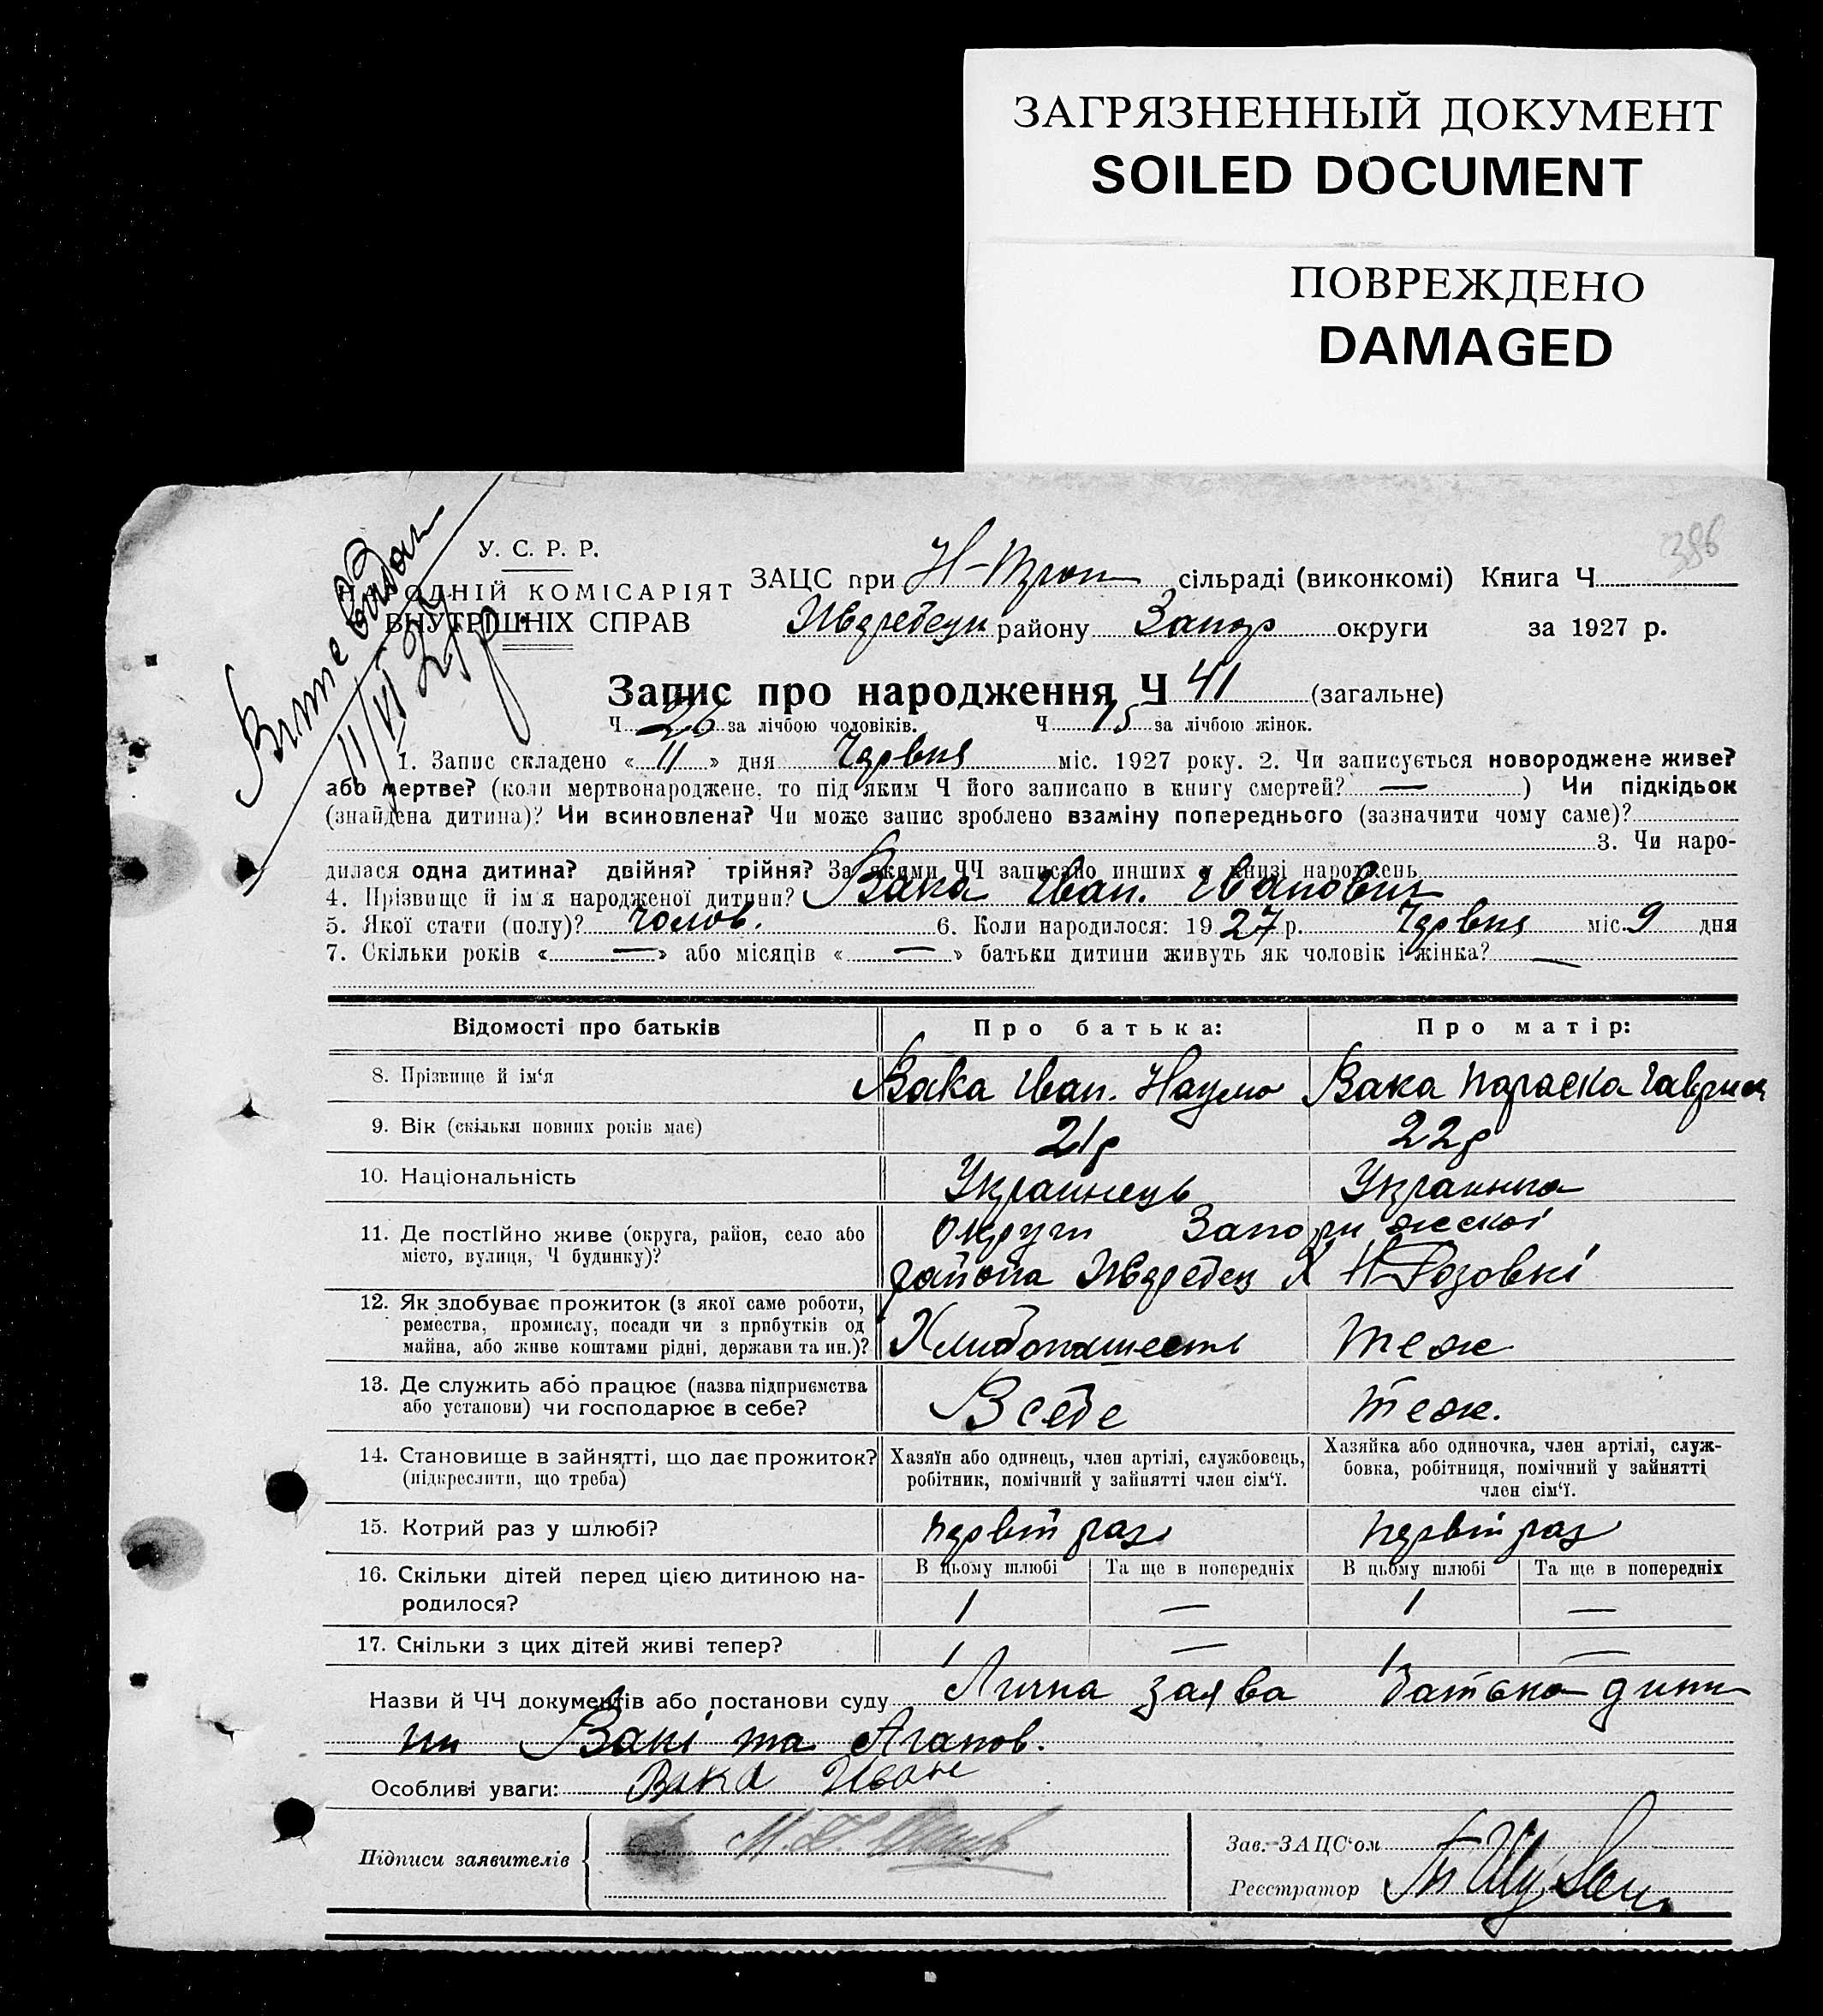 ЗАГРЯЗНЕННЫЙ ДОКУМЕНТ
SOILED DOCUMENT
ПОВРЕЖДЕНО
DAMAGED
386
У. С. Р. Р.
НАРОДНІЙ КОМІСАРІЯТ
ВНУТРІШНІХ СПРАВ
ЗАЦС при сільраді (виконкомі) Книга Ч
району Запор округи за 1927 р.
Запис про народження Ч 41 (загальне)
Ч 26 за лічбою чоловіків. Ч 15 за лічбою жінок.
1. Запис складено « 11 » дня Червня міс. 1927 року. 2. Чи записується новороджене живе?
або мертве? (коли мертвонароджене, то під яким Ч його записано в книгу смертей? — ) Чи підкідьок
(знайдена дитина)? Чи всиновлена? Чи може запис зроблено взаміну попереднього (зазначити чому саме)?
3. Чи наро-
дилася одна дитина? двійня? трійня? За якими ЧЧ записано инших у книзі народжень
4. Прізвище й ім'я народженої дитини? Вака Іван. Іванович
5. Якої стати (полу)? чолов. 6. Коли народилося: 1927 р. Червня міс. 9 дня
7. Скільки років « — » або місяців « — » батьки дитини живуть як чоловік і жінка? —
Відомості про батьків Про батька: Про матір:
8. Прізвище й ім'я Вака Іван. Наумо Вака Параска
9. Вік (скільки повних років має) 21р 22р
10. Національність Украинець Украинка
11. Де постійно живе (округа, район, село або
місто, вулиця, Ч будинку)?
округи Запорижскоі
района Розовкі
12. Як здобуває прожиток (з якої саме роботи,
ремества, промислу, посади чи з прибутків од
майна, або живе коштами рідні, держави та ин.)?
теж
13. Де служить або працює (назва підприємства
або установи) чи господарює в себе?
В себе теж.
14. Становище в зайнятті, що дає прожиток?
(підкреслити, що треба)
Хазяїн або одинець, член артілі, службовець,
робітник, помічний у зайнятті член сім'ї.
Хазяйка або одиночка, член артілі, служ-
бовка, робітниця, помічний у зайнятті
член сім'ї.
15. Котрий раз у шлюбі? раз раз
16. Скільки дітей перед цією дитиною на-
родилося?
В цьому шлюбі Та ще в попередніх В цьому шлюбі Та ще в попередніх
1 — 1 —
17. Скільки з цих дітей живі тепер? 1 — 1 —
Назви й ЧЧ документів або постанови суду Лична заява батька дити
ни Вакі та Агапов.
Особливі уваги: Вака Иван
Підписи заявителів
Зав. ЗАЦС'ом
Реєстратор